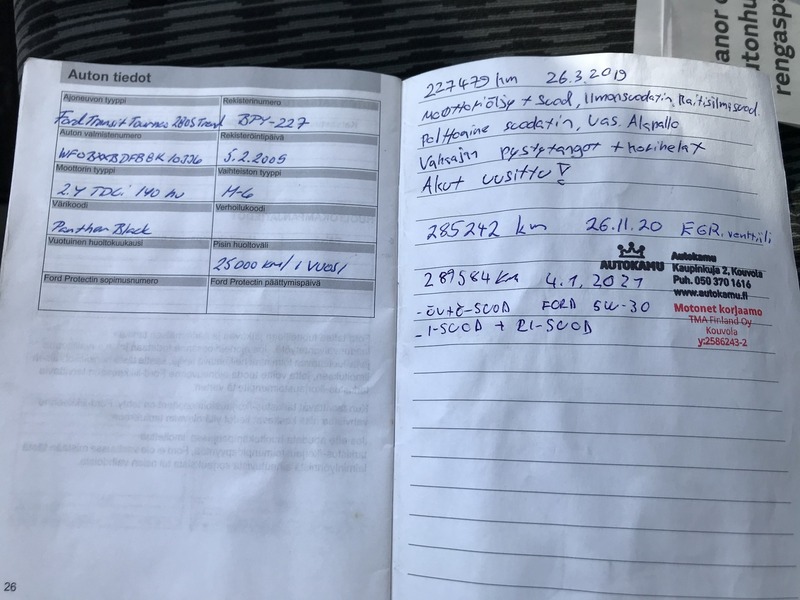 Auton tiedot
Ajoneuvon tyyppi
Rekisterinumero
Ford Transit Tourneo 280S Trend
BPY-227
Auton valmistenumero
Rekisteröintipäivä
5.2.2005
Moottorin tyyppi
Vaihteiston tyyppi
2.4 TDCi 140 hv
M-6
Värikoodi
Verhoilukoodi
Panther Black
Vuotuinen huoltokuukausi
Pisin huoltoväli
25000 km/1 vuosi
Ford Protectin sopimusnumero
Ford Protectin päättymispäivä
26
227479 km 26.3.2019
Moottoriöljy + suod, ilmansuodatin, Raitisilmasuod.
Polttoaine suodatin, Vas. Alapallo
Vakaajan pystytangot +
Akut uusittu!
285242 km 26.11.20 EGR. venttiili
AUTOKAMU
Autokamu
Kaupinkuja 2, Kouvola
Puh. 050 370 1616
www.autokamu.fi
289584 km 4.1.2021
-ÖV+Ö-SUOD FORD 5W-30
-I-SUOD + RI-SUOD
Motonet korjaamo
TMA Finland Oy
Kouvola
y:2586243-2
anor
utonhu
rengaspa